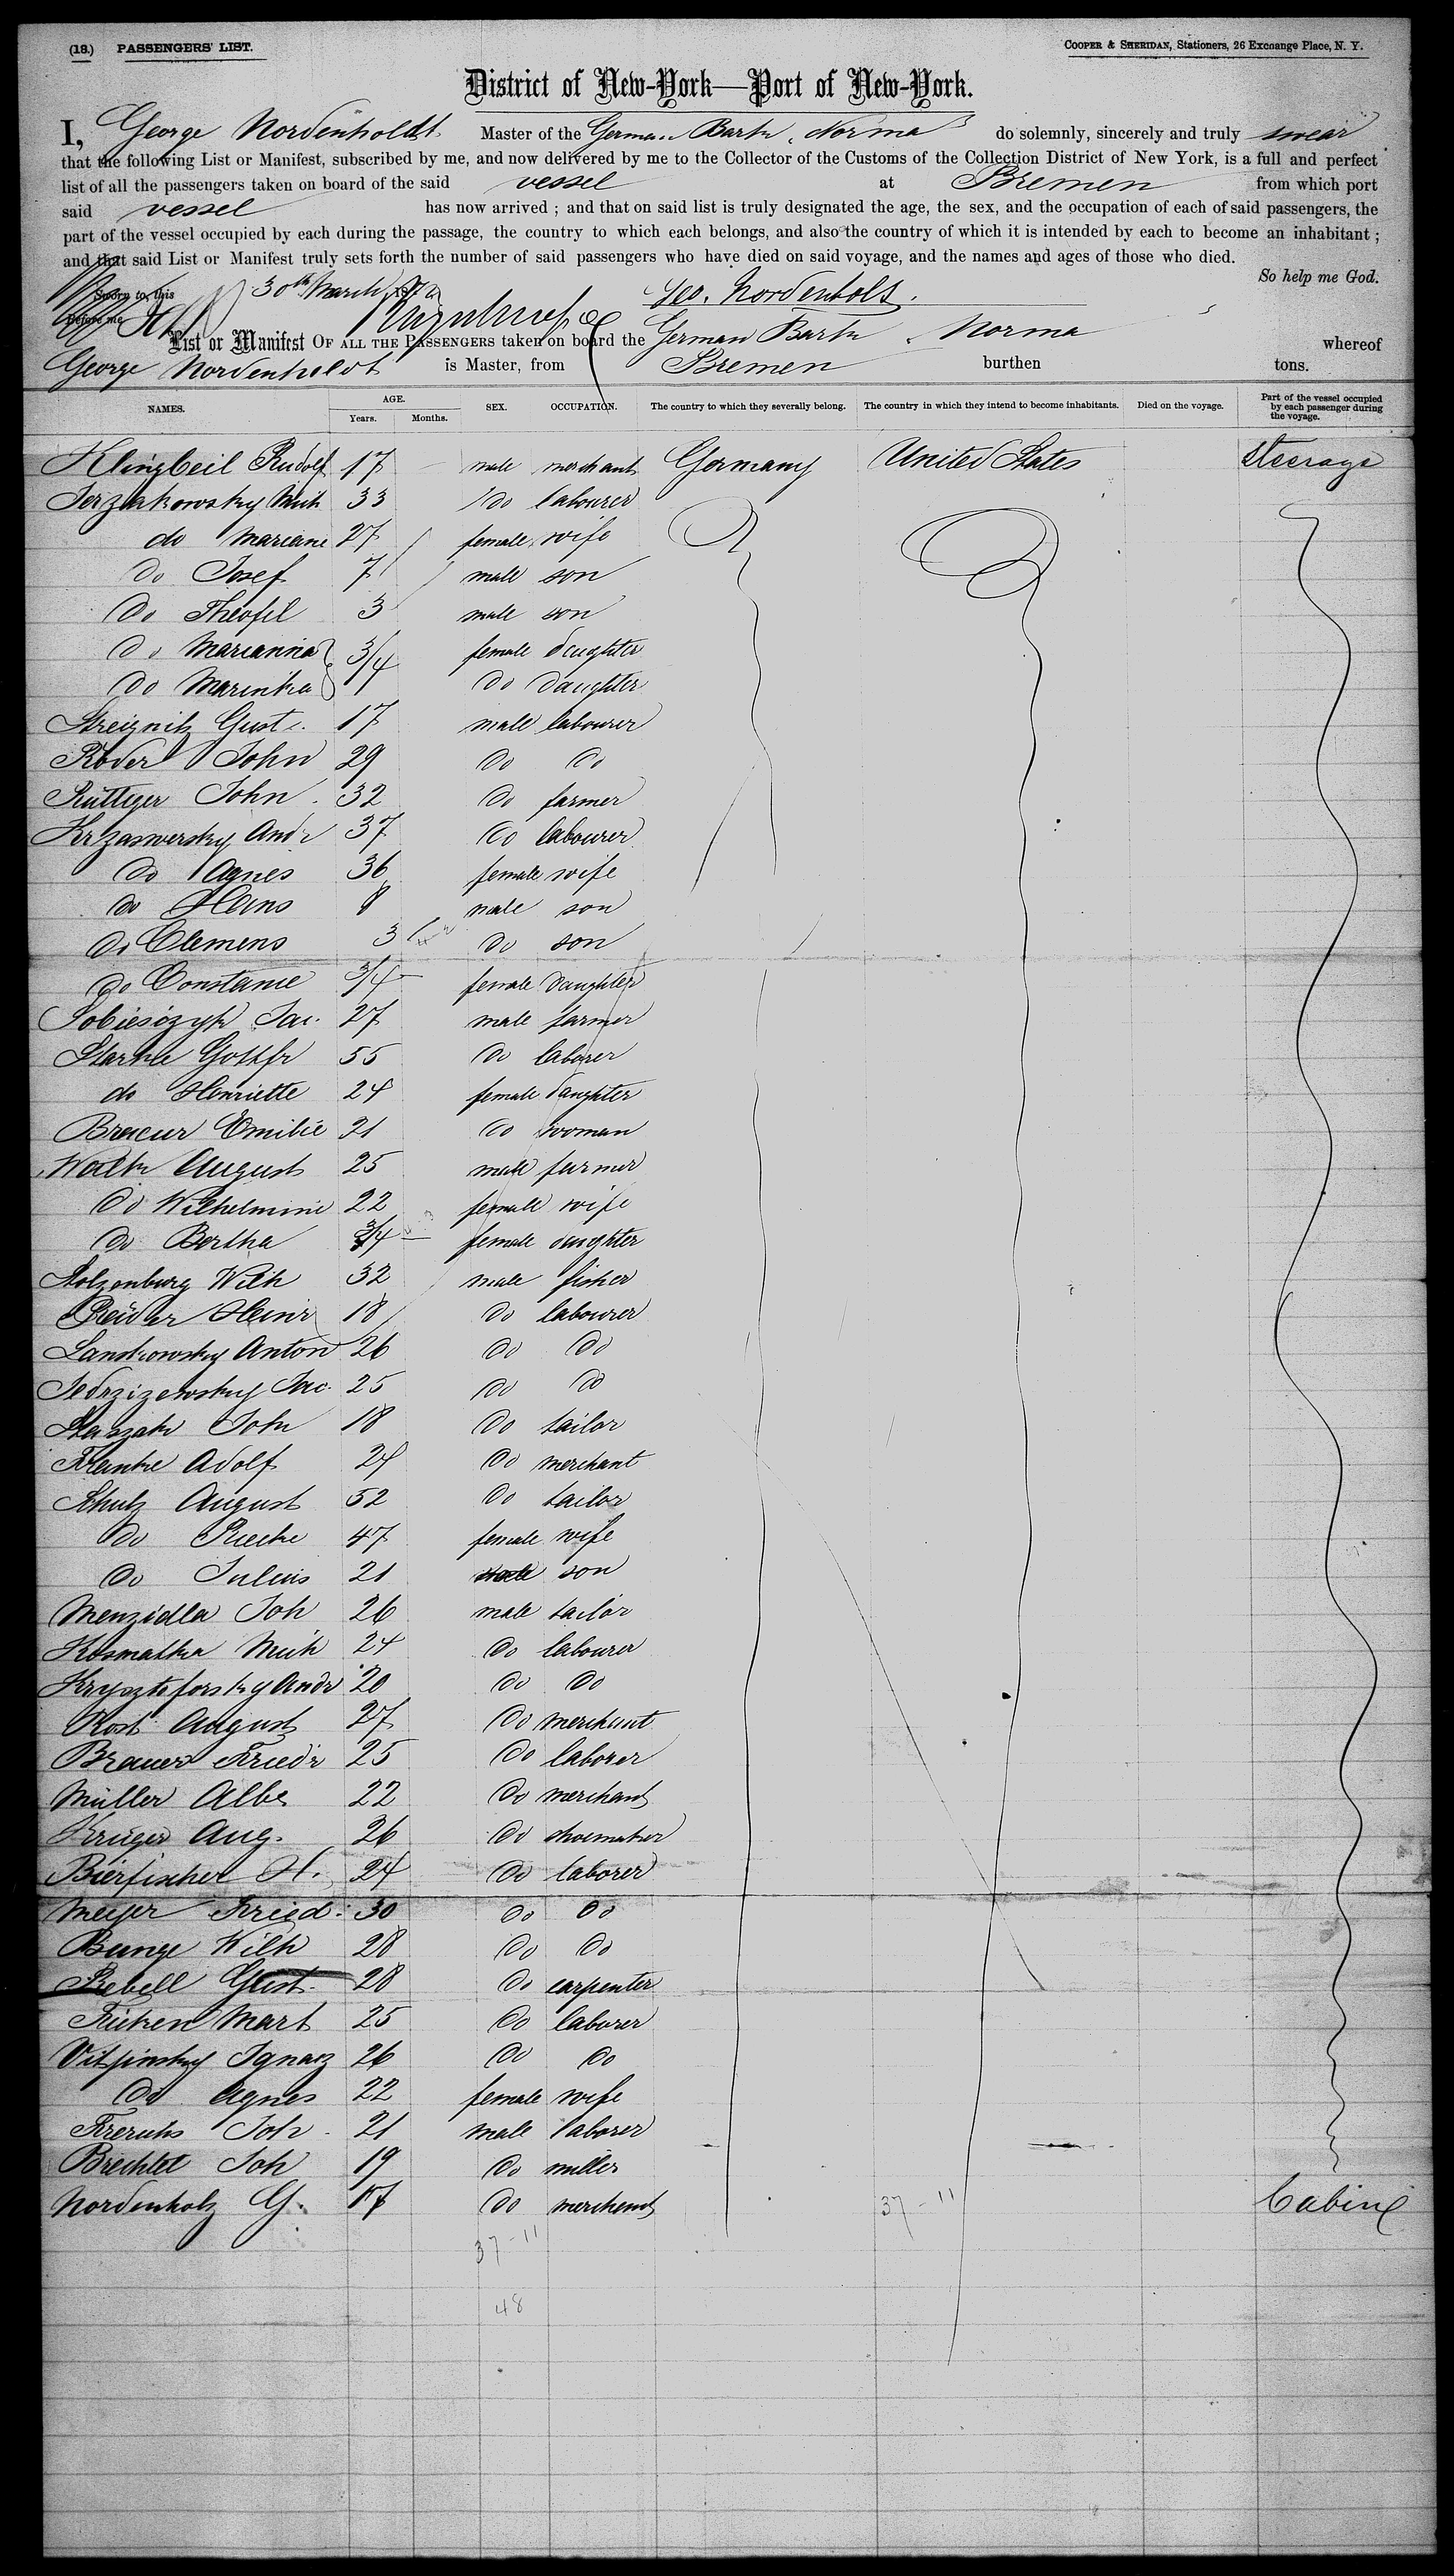 (18.) PASSENGERS' LIST.
COOPER & SHERIDAN, Stationers, 26 Exchange Place, N. Y.
District of New-York—Port of New-York.
I, George Nordenholdt Master of the German Bark "Norma" do solemnly, sincerely and truly swear
that the following List or Manifest, subscribed by me, and now delivered by me to the Collector of the Customs of the Collection District of New York, is a full and perfect
list of all the passengers taken on board of the said vessel at Bremen from which port
said vessel has now arrived ; and that on said list is truly designated the age, the sex, and the occupation of each of said passengers, the
part of the vessel occupied by each during the passage, the country to which each belongs, and also the country of which it is intended by each to become an inhabitant ;
and that said List or Manifest truly sets forth the number of said passengers who have died on said voyage, and the names and ages of those who died.
So help me God.
Sworn to, this 30th March
Geo. Nordenholt.
Before me
List or Manifest OF ALL THE PASSENGERS taken on board the German Bark "Norma whereof
George Nordenholdt is Master, from Bremen burthen tons.
NAMES. AGE. Years. Months. SEX. OCCUPATION. The country to which they severally belong. The country in which they intend to become inhabitants. Died on the voyage. Part of the vessel occupied by each passenger during the voyage.
Klingbeil Rudolf 17 male merchant Germany United States Steerage
Mich 33 do labourer
do Mariane 27 female wife
do Josef 7 male son
do Theofil 3 male son
do Marianna 3/4 female daughter
do Marinka do daughter
Streignitz Gust. 17 male labourer
Röder John 29 do do
Rüttger John 32 do farmer
Andr 37 do labourer
do Agnes 36 female wife
do Hans 8 male son
do Clemens 3 do son
do Constanie 3/4 female daughter
Sobiesczyk Jac. 27 male farmer
Starke Gottfr 55 do laborer
do Henriette 24 female daughter
Emilie 21 do woman
August 25 male farmer
do Wilhelmine 22 female wife
do Bertha 3/4 female daughter
Stolzenburg Wilh 32 male fisher
Heinr 18 do labourer
Lanskowsky Anton 26 do do
Jedrzizewsky Jac. 25 do do
Staszak John 18 do tailor
Franke Adolf 24 do merchant
Schulz August 52 do tailor
do Rieke 47 female wife
do Julius 21 male son
Menzidla Joh 26 male tailor
Kosmatka Mich 24 do labourer
Krysztoforsky Andr 20 do do
Rost August 27 do merchant
Brauer Friedr 25 do laborer
Müller Albe 22 do merchant
Krüger Aug. 26 do shoemaker
Bierfischer H. 24 do laborer
Meyer Fried. 30 do do
Bunge Wilh 28 do do
Rebell Gust. 28 do carpenter
Ficken Mart 25 do laborer
Vitpinsky Ignaz 26 do do
do Agnes 22 female wife
Frerichs Joh 21 male laborer
Brechtet Joh 19 do miller
Nordenholz G. 17 do merchant 37-11 Cabine
37-11
48